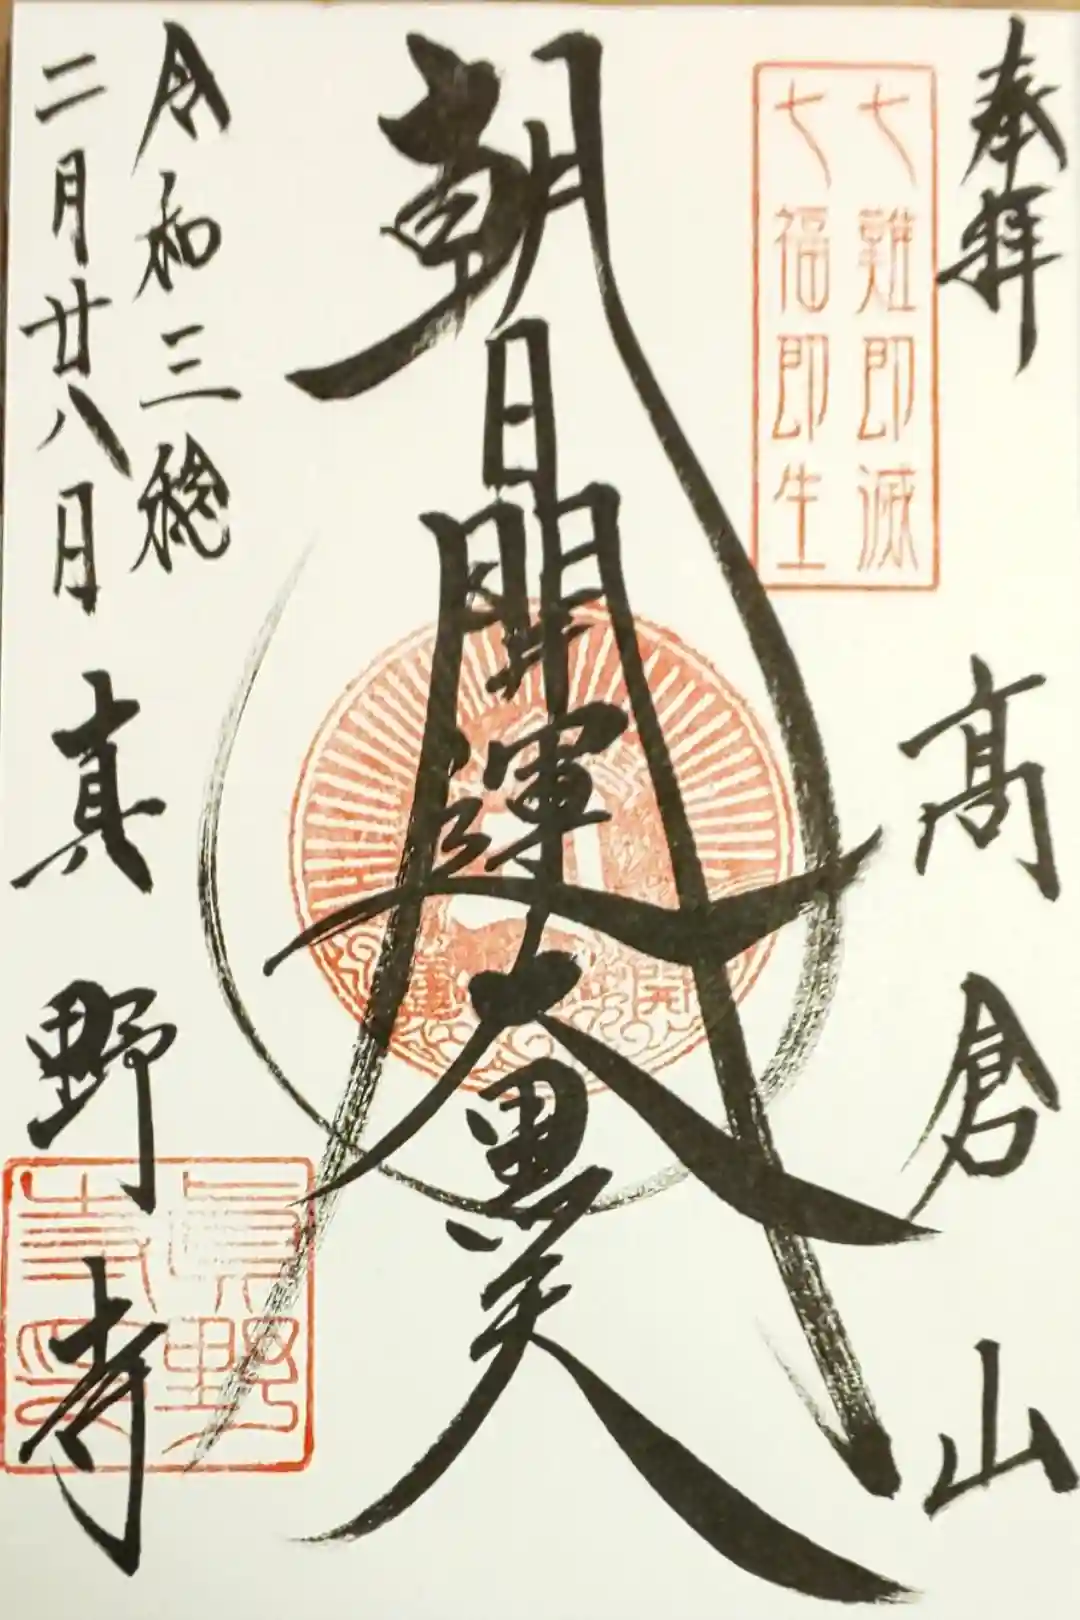 奉拝
髙倉山
七難即滅
七福即生
朝日開運大黒天
開運
令和三穐
二月廿八日
真野寺
眞野
寺印